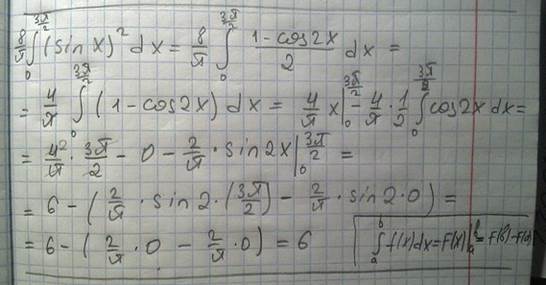 8/π ∫₀^(3π/2) (sin x)² dx = 8/π ∫₀^(3π/2) (1-cos2x)/2 dx =
= 4/π ∫₀^(3π/2) (1-cos2x) dx = 4/π x|₀^(3π/2) - 4/π · 1/2 ∫₀^(3π/2) cos2x dx =
= 4²/π · 3π/2 - 0 - 2/π · sin2x|₀^(3π/2) =
= 6 - (2/π · sin2·(3π/2) - 2/π · sin2·0) =
= 6 - (2/π · 0 - 2/π · 0) = 6
∫ₐᵇ f(x)dx = F(x)|ₐᵇ = F(b) - F(a)